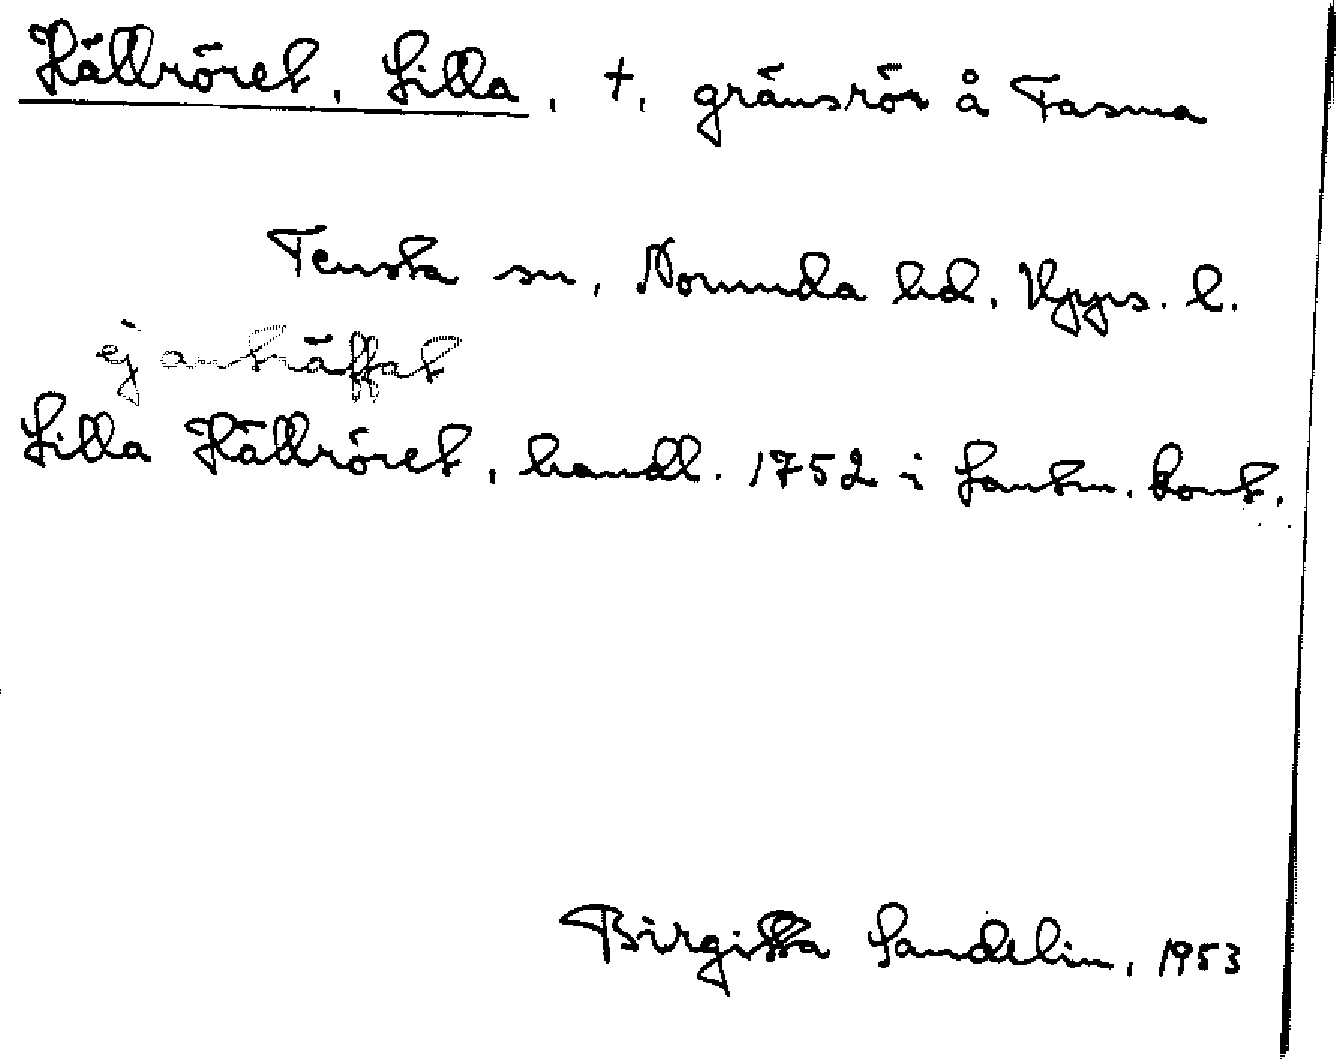 Hällröret, Lilla, +, gränsrös å Tasma
Tensta sn, Norunda hd, Upps. l.
ej anträffat
Lilla Hällröret, handl. 1752 i Lantm. kont.
Birgitta Sandelin, 1953